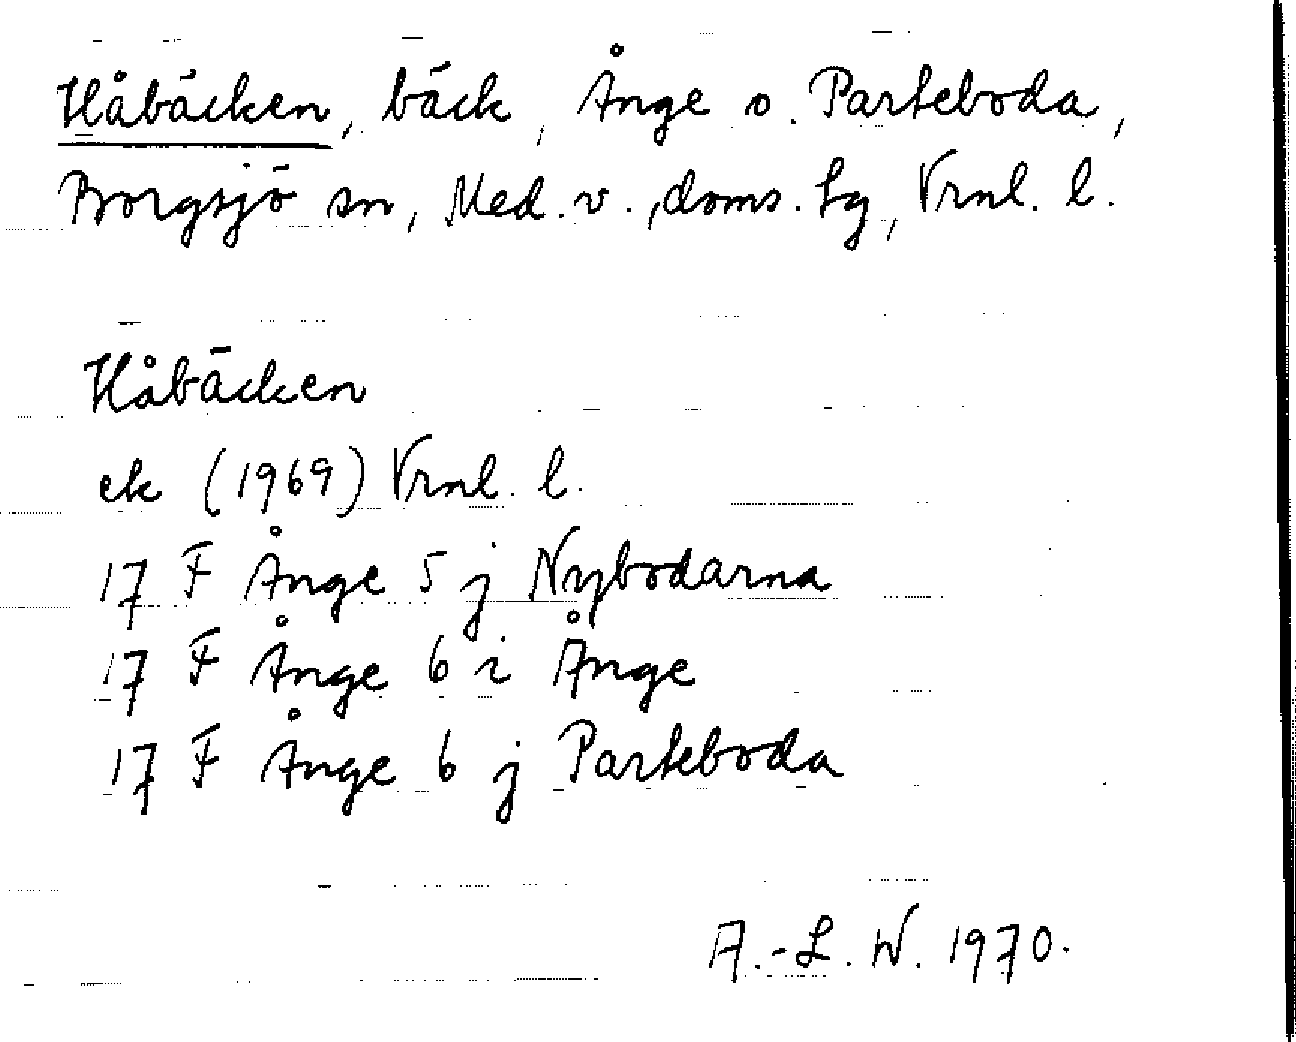 Håbäcken, bäck, Ånge o. Parteboda,
Borgsjö sn, Med. v., doms. Lg, Vrnl. l.
Håbäcken
ek (1969) Vrnl. l.
17 F Ånge 5 j Nybodarna
17 F Ånge 6 i Ånge
17 F Ånge 6 j Parteboda
A.-L. W. 1970.